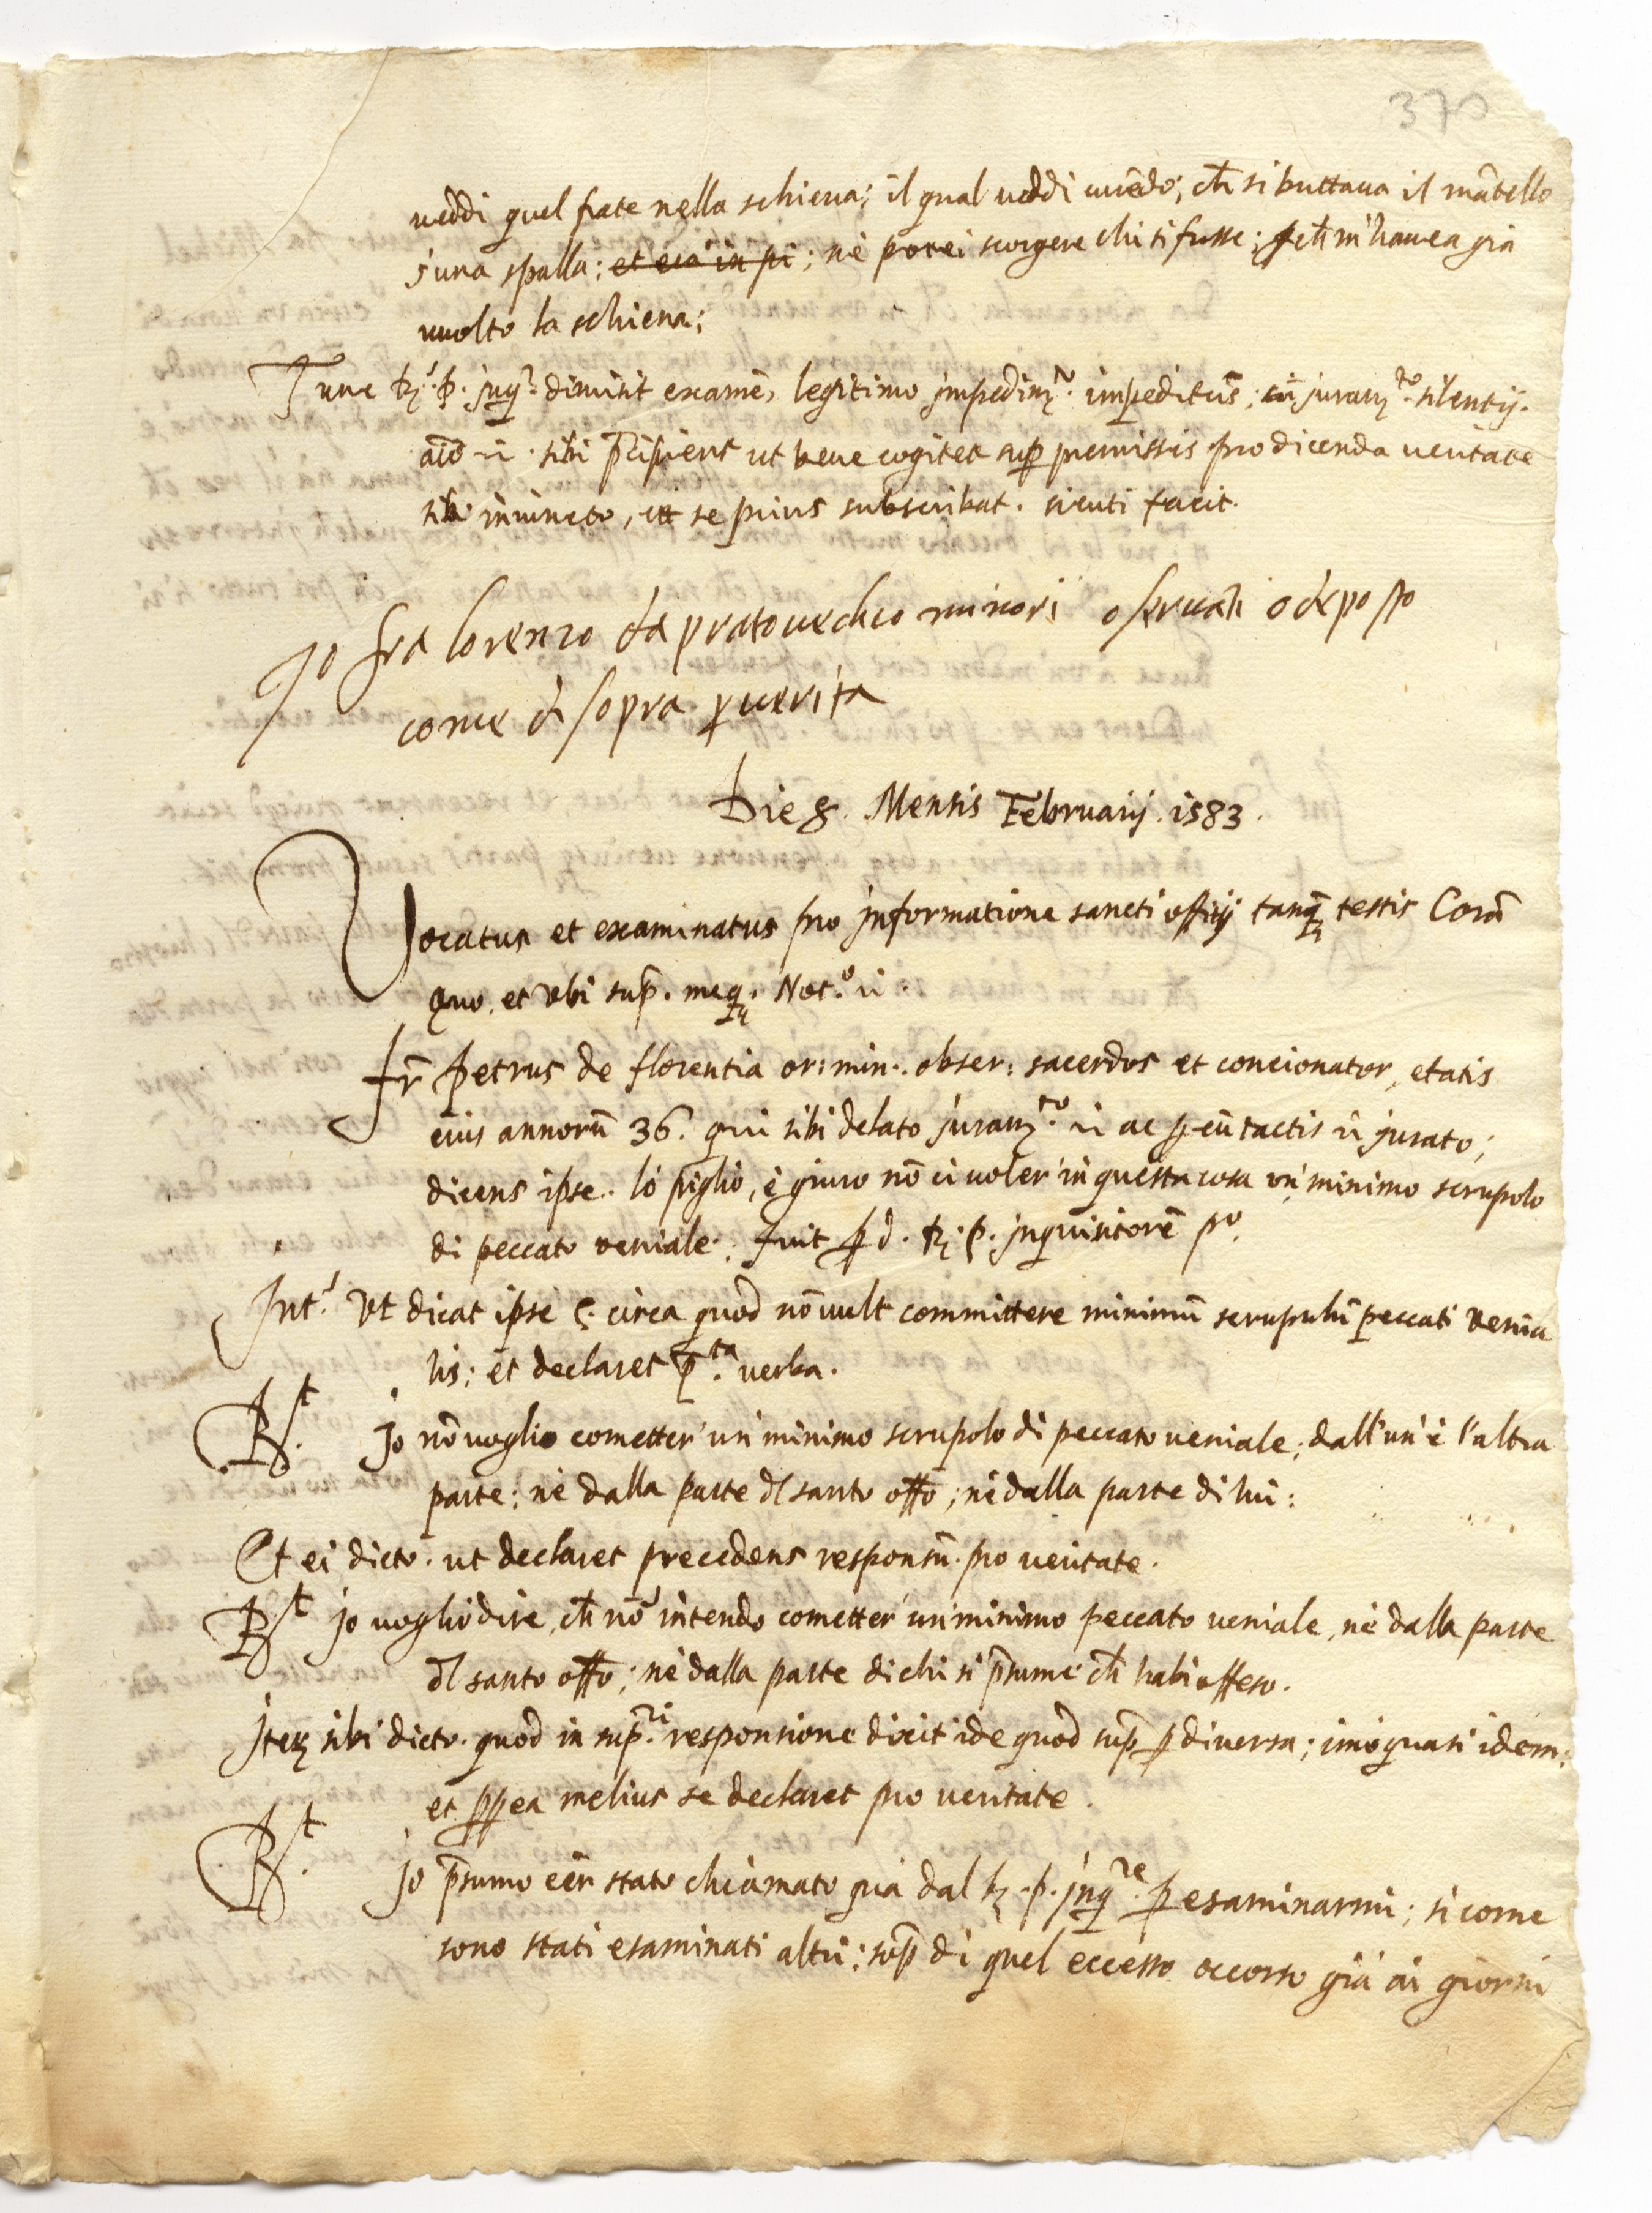 370
ueddi quel frate nella schiena; il qual ueddi uiuēdo; ch̄ si buttaua il mātello
s'una spalla; et era in pi; nè potei scorgere chi si fusse; ꝑch̄ m'hauea già
uuolto la schiena;
Tunc R.ˢ p. jnq.ʳ dimisit examē, legitimo jmpedim.ᵗᵒ impeditus; cū juram.ᵗᵒ silentij.
sibi p̄cipiens ut bene cogitet sup̄ premissis pro dicenda ueritate
sibi iniuncto, et se prius subscribat. sicuti fecit.
Jo fra lorenzo da pratouechio minori oseruāti o deposto
come di sopra ꝑ uerita
Die 8. Mensis Februarij. 1583.
Vocatus et examinatus pro jnformatione sancti offitij tanq̄ testis Corā
Quo. et vbi sup̄. meq. Not.º
Fr̄ Petrus de florentia or: min: obser: sacerdos et concionator, etatis
eius annorū 36. qui sibi delato juram.ᵗᵒ ac ꝑ eū tactis jurato;
dicens ipse. lo piglio, è giuro nō ci uoler' in questa cosa un' minimo scrupolo
di peccato veniale; fuit ꝑ d. R. p. jnquisitorē
Int.ˢ Vt dicat ipse c. circa quod nō uult committere minimū scrupulū peccati venia
lis; et declaret p.ᵗᵃ verba.
R.ᵗ Jo nō uoglio cometter' un' minimo scrupolo di peccato ueniale; dall'un' è l'altra
parte; nè dalla parte dl santo offo; nè dalla parte di lui:
Et ei dicto. ut declaret precedens responsū. pro ueritate.
R.ᵗ jo uoglio dire, ch̄ nō intendo cometter' un' minimo peccato ueniale, nè dalla parte
dl santo offo; nè dalla parte di chi si p̄sume ch̄ habi offeso.
Jtem sibi dicto. quod in sup.ʳⁱ responsione dicit idē quod sup̄ ꝑ diuersa; imo quasi idem;
et ꝓꝑea melius se declaret pro ueritate.
R.ᵗ Jo p̄sumo eēr stato chiamato già dal R. p. jnq.ʳᵉ ꝑ esaminarmi; si come
sono stati esaminati altri; sop̄ di quel eccesso occorso già ai giorni